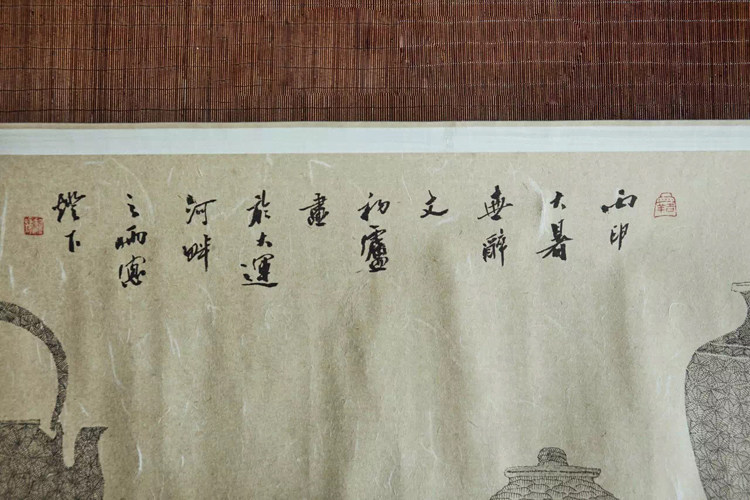 丙申
大暑
無辭
文
初廬
畫
於大運
河畔
之雨窗
燈下